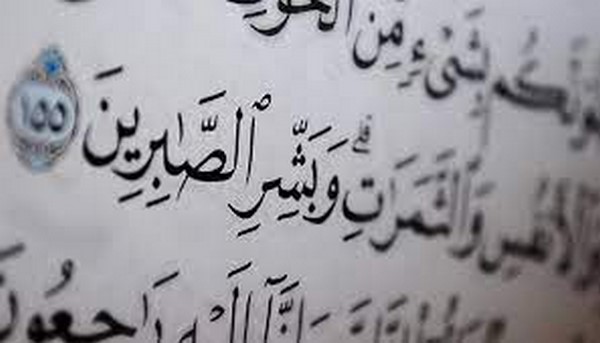 بِشَىْءٍ مِّنَ الْخَوْفِ
وَالْأَنفُسِ وَالثَّمَرَٰتِ ۗ وَبَشِّرِ الصَّـٰبِرِينَ ١٥٥
وَإِنَّآ إِلَيْهِ رَٰجِعُونَ